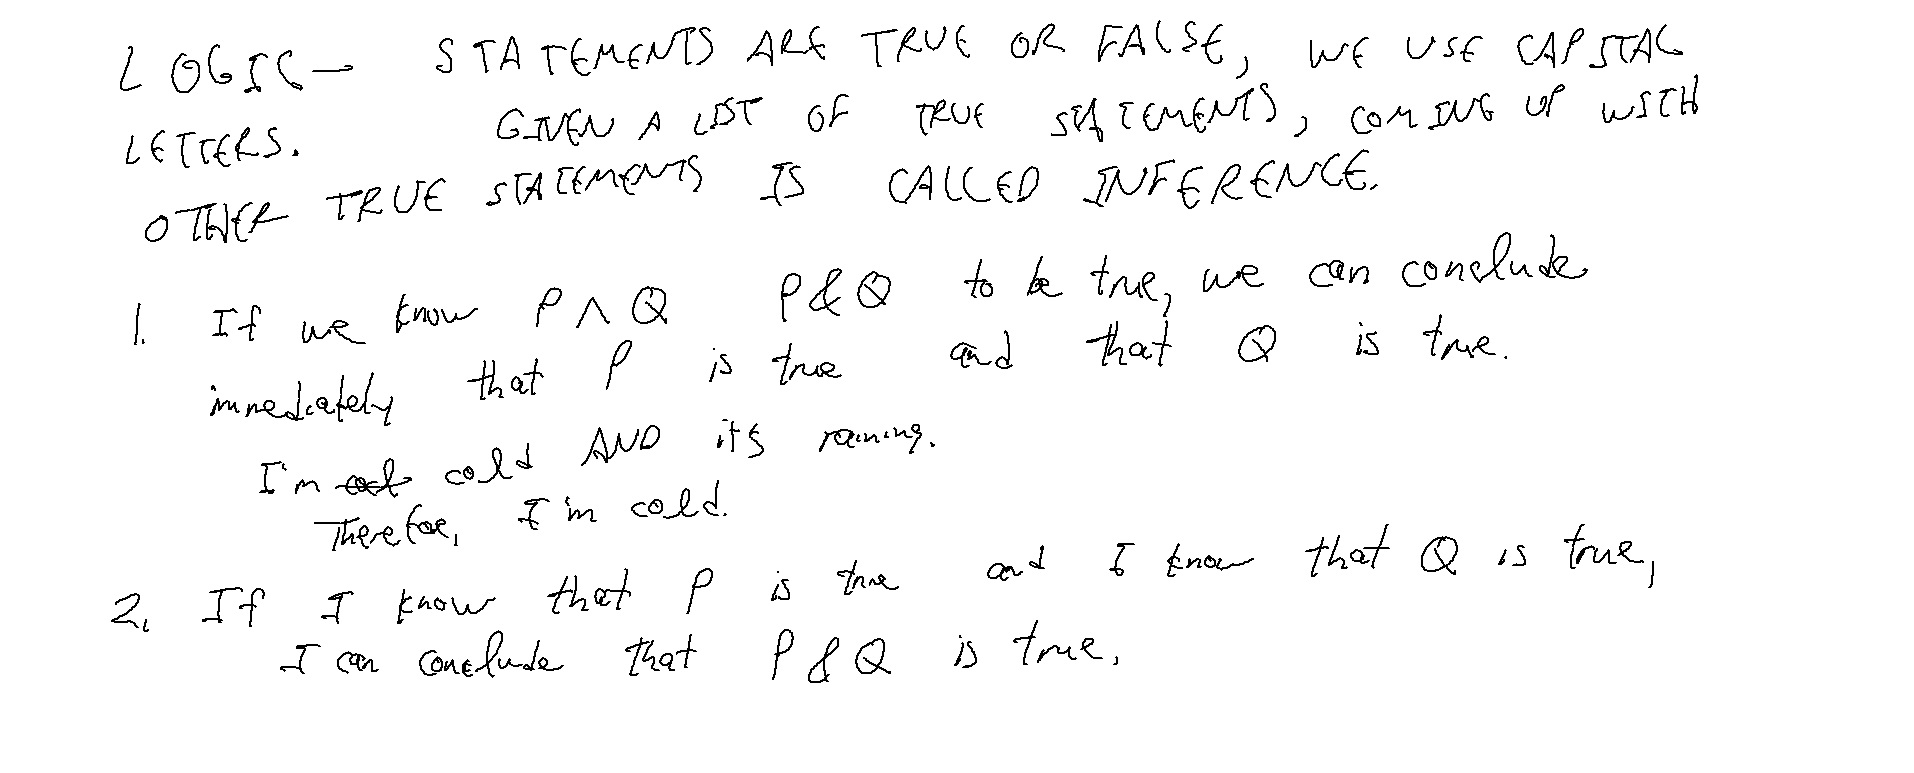 LOGIC— STATEMENTS ARE TRUE OR FALSE, WE USE CAPITAL
LETTERS. GIVEN A LIST OF TRUE STATEMENTS, COMING UP WITH
OTHER TRUE STATEMENTS IS CALLED INFERENCE.
1. If we know P ∧ Q P & Q to be true, we can conclude
immediately that P is true and that Q is true.
I'm cold AND its raining.
Therefore, I'm cold.
2. If I know that P is true and I know that Q is true,
I can conclude that P & Q is true.